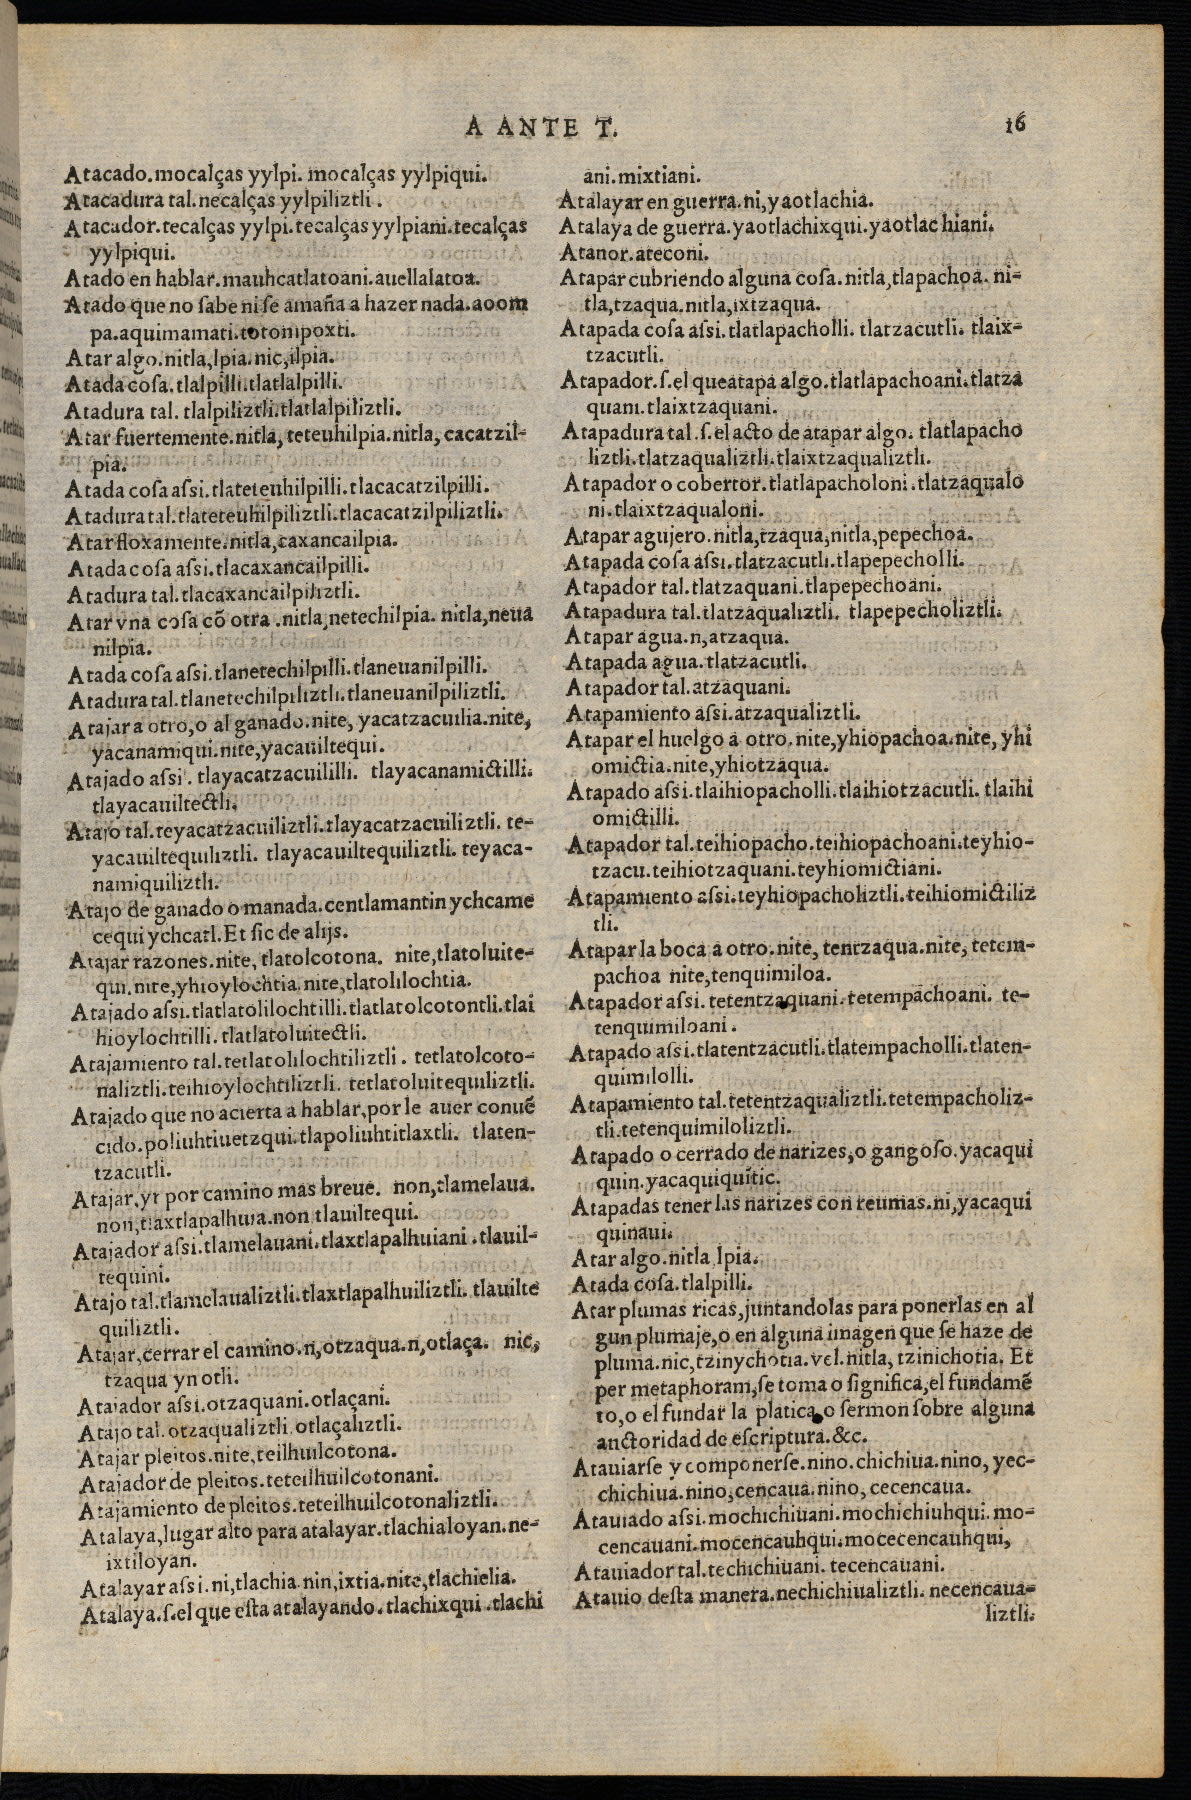 A ANTE T.
16
Atacado.mocalças yylpi. mocalças yylpiqui.
Atacadura tal.necalças yylpiliztli.
Atacador.tecalças yylpi.tecalças yylpiani.tecalças
yylpiqui.
Atado en hablar.mauhcatlatoani.auellalatoa.
Atado que no ſabe ni ſe amaña a hazer nada.aoom
pa.aquimamati.totompoxti.
Atar algo.nitla,lpia.nic,ilpia.
Atada coſa.tlalpilli.tlatlalpilli.
Atadura tal. tlalpiliztli.tlatlalpiliztli.
Atar fuertemente.nitla, teteuhilpia.nitla, cacatzil-
pia.
Atada coſa aſsi.tlateteuhilpilli.tlacacatzilpilli.
Atadura tal.tlateteuhilpiliztli.tlacacatzilpiliztli.
Atar floxamente.nitla,caxancailpia.
Atada coſa aſsi.tlacaxancailpilli.
Atadura tal.tlacaxancailpiliztli.
Atar vna coſa cõ otra .nitla,netechilpia. nitla,neua
nilpia.
Atada coſa aſsi.tlanetechilpilli.tlaneuanilpilli.
Atadura tal.tlanetechilpiliztli.tlaneuanilpiliztli.
Atajar a otro,o al ganado.nite, yacatzacuilia.nite,
yacanamiqui.nite,yacauiltequi.
Atajado aſsi. tlayacatzacuililli. tlayacanamictilli.
tlayacauiltectli.
Atajo tal.teyacatzacuiliztli.tlayacatzacuiliztli. te-
yacauiltequiliztli. tlayacauiltequiliztli. teyaca-
namiquiliztli.
Atajo de ganado o manada.centlamantin ychcame
cequi ychcatl.Et ſic de alijs.
Atajar razones.nite, tlatolcotona. nite,tlatoluite-
qui.nite,yhioylochtia.nite,tlatolilochtia.
Atajado aſsi.tlatlatolilochtilli.tlatlatolcotontli.tlai
hioylochtilli.tlatlatoluitectli.
Atajamiento tal.tetlatolilochtiliztli. tetlatolcoto-
naliztli.teihioylochtiliztli. tetlatoluitequiliztli.
Atajado que no acierta a hablar,por le auer conuẽ
cido.poliuhtiuetzqui.tlapoliuhtitlaxtli. tlaten-
tzacutli.
Atajar.yr por camino mas breue. non,tlamelaua.
non,tlaxtlapalhuia.non tlauiltequi.
Atajador aſsi.tlamelauani.tlaxtlapalhuiani.tlauil-
tequini.
Atajo tal.tlamelaualiztli.tlaxtlapalhuiliztli. tlauilte
quiliztli.
Atajar,cerrar el camino.n,otzaqua.n,otlaça. nic,
tzaqua yn otli.
Atajador aſsi.otzaquani.otlaçani.
Atajo tal.otzaqualiztli otlaçaliztli.
Atajar pleitos.nite,teilhuilcotona.
Atajador de pleitos.teteilhuilcotonani.
Atajamiento de pleitos.teteilhuilcotonaliztli.
Atalaya,lugar alto para atalayar.tlachialoyan.ne-
ixtiloyan.
Atalayar aſsi.ni,tlachia nin,ixtia.nite,tlachielia.
Atalaya.ſ.el que eſta atalayando.tlachixqui.tlachi
ani.mixtiani.
Atalayar en guerra.ni,yaotlachia.
Atalaya de guerra.yaotlachixqui.yaotlachiani.
Atanor.ateconi.
Atapar cubriendo alguna coſa.nitla,tlapachoa. ni-
tla,tzaqua.nitla,ixtzaqua.
Atapada coſa aſsi.tlatlapacholli. tlatzacutli. tlaix-
tzacutli.
Atapador.ſ.el que atapa algo.tlatlapachoani.tlatza
quani.tlaixtzaquani.
Atapadura tal.ſ.el acto de atapar algo. tlatlapacho
liztli.tlatzaqualiztli.tlaixtzaqualiztli.
Atapador o cobertor.tlatlapacholoni.tlatzaqualo
ni.tlaixtzaqualoni.
Atapar agujero.nitla,tzaqua,nitla,pepechoa.
Atapada coſa aſsi.tlatzacutli.tlapepecholli.
Atapador tal.tlatzaquani.tlapepechoani.
Atapadura tal.tlatzaqualiztli. tlapepecholiztli.
Atapar agua.n,atzaqua.
Atapada agua.tlatzacutli.
Atapador tal.atzaquani.
Atapamiento aſsi.atzaqualiztli.
Atapar el huelgo a otro.nite,yhiopachoa.nite, yhi
omictia.nite,yhiotzaqua.
Atapado aſsi.tlaihiopacholli.tlaihiotzacutli. tlaihi
omictilli.
Atapador tal.teihiopacho.teihiopachoani.teyhio-
tzacu.teihiotzaquani.teyhiomictiani.
Atapamiento aſsi.teyhiopacholiztli.teihiomictiliz
tli.
Atapar la boca a otro.nite, tentzaqua.nite, tetem-
pachoa nite,tenquimiloa.
Atapador aſsi.tetentzaquani.tetempachoani. te-
tenquimiloani.
Atapado aſsi.tlatentzacutli.tlatempacholli.tlaten-
quimilolli.
Atapamiento tal.tetentzaqualiztli.tetempacholiz-
tli.tetenquimiloliztli.
Atapado o cerrado de narizes,o gangoſo.yacaqui
quin.yacaquiquĩtic.
Atapadas tener las narizes con reumas.ni,yacaqui
quinaui.
Atar algo.nitla lpia.
Atada coſa.tlalpilli.
Atar plumas ricas,juntandolas para ponerlas en al
gun plumaje,o en alguna imagen que ſe haze de
pluma.nic,tzinychotia.vel.nitla, tzinichotia. Et
per metaphoram,ſe toma o ſignifica,el fundamẽ
to,o el fundar la platica,o ſermon ſobre alguna
auctoridad de eſcriptura.&c.
Atauiarſe y componerſe.nino.chichiua.nino, yec-
chichiua.nino,cencaua.nino, cecencaua.
Atauiado aſsi.mochichiuani.mochichiuhqui.mo-
cencauani.mocencauhqui.mocecencauhqui,
Atauiador tal.techichiuani. tecencauani.
Atauio deſta manera.nechichiualiztli. necencaua-
liztli.